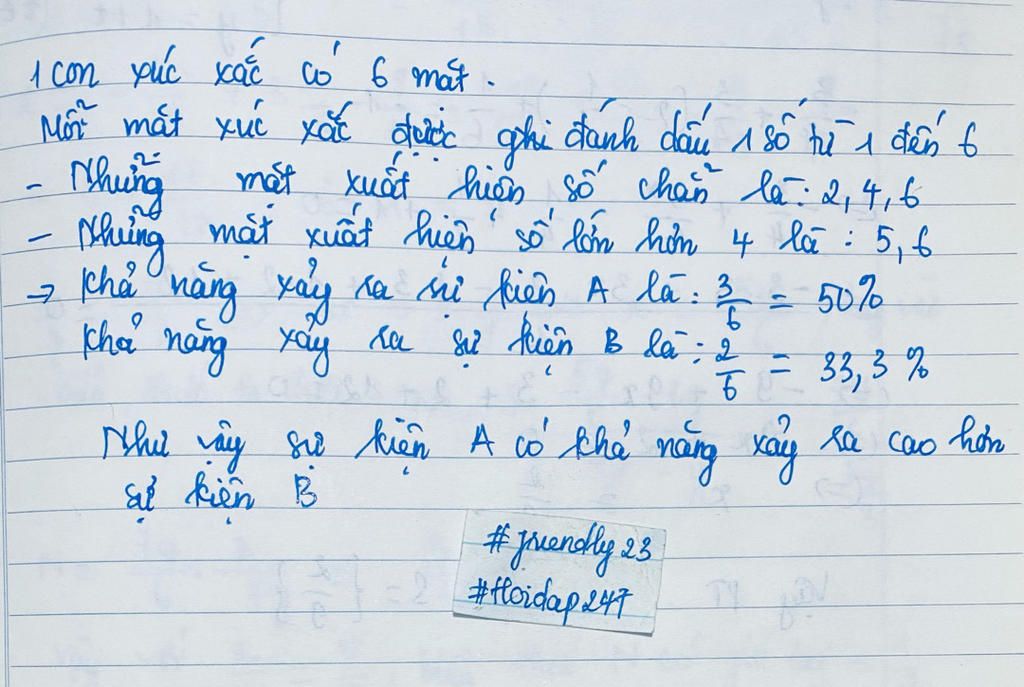 1 con xúc xắc có 6 mặt.
Mỗi mặt xúc xắc được ghi đánh dấu 1 số từ 1 đến 6
- Những mặt xuất hiện số chẵn là: 2, 4, 6
- Những mặt xuất hiện số lớn hơn 4 là: 5, 6
→ Khả năng xảy ra sự kiện A là: 3/6 = 50%
Khả năng xảy ra sự kiện B là: 2/6 = 33,3 %
Như vậy sự kiện A có khả năng xảy ra cao hơn
sự kiện B
#friendly23
#Hoidap247